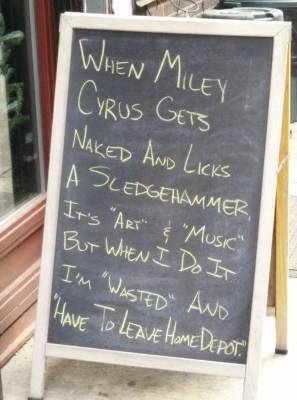 When Miley
Cyrus Gets
Naked And Licks
A Sledgehammer,
It's "Art" & "Music"
But When I Do It
I'm "Wasted" And
"Have To Leave Home Depot."